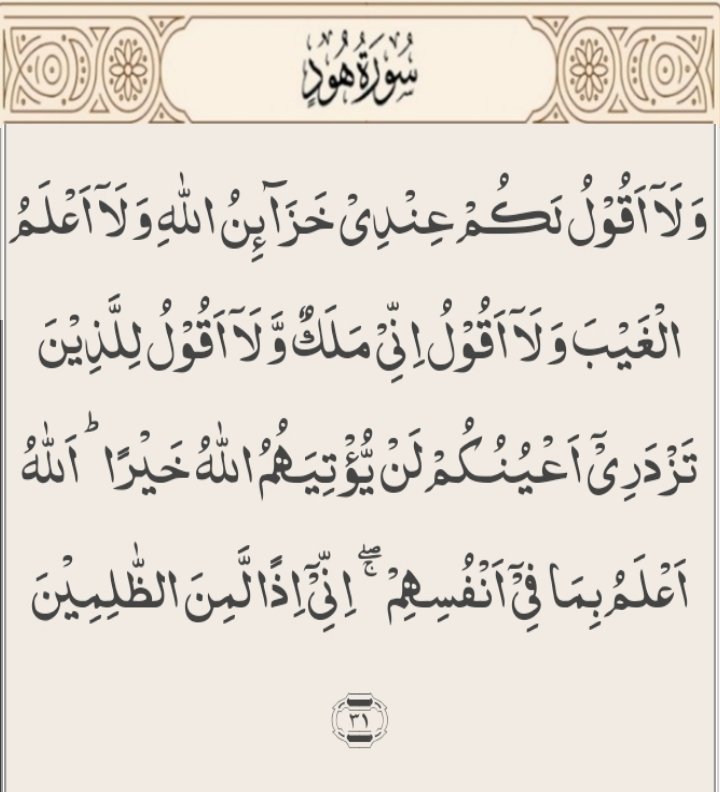 سُوْرَةُ هُوْدٍ
وَلَآ اَقُوْلُ لَكُمْ عِنْدِيْ خَزَآئِنُ اللّٰهِ وَلَآ اَعْلَمُ
الْغَيْبَ وَلَآ اَقُوْلُ اِنِّيْ مَلَكٌ وَّلَآ اَقُوْلُ لِلَّذِيْنَ
تَزْدَرِيْٓ اَعْيُنُكُمْ لَنْ يُّؤْتِيَهُمُ اللّٰهُ خَيْرًا ؕ اَللّٰهُ
اَعْلَمُ بِمَا فِيْٓ اَنْفُسِهِمْ ۖۚ اِنِّيْٓ اِذًا لَّمِنَ الظّٰلِمِيْنَ
٣١